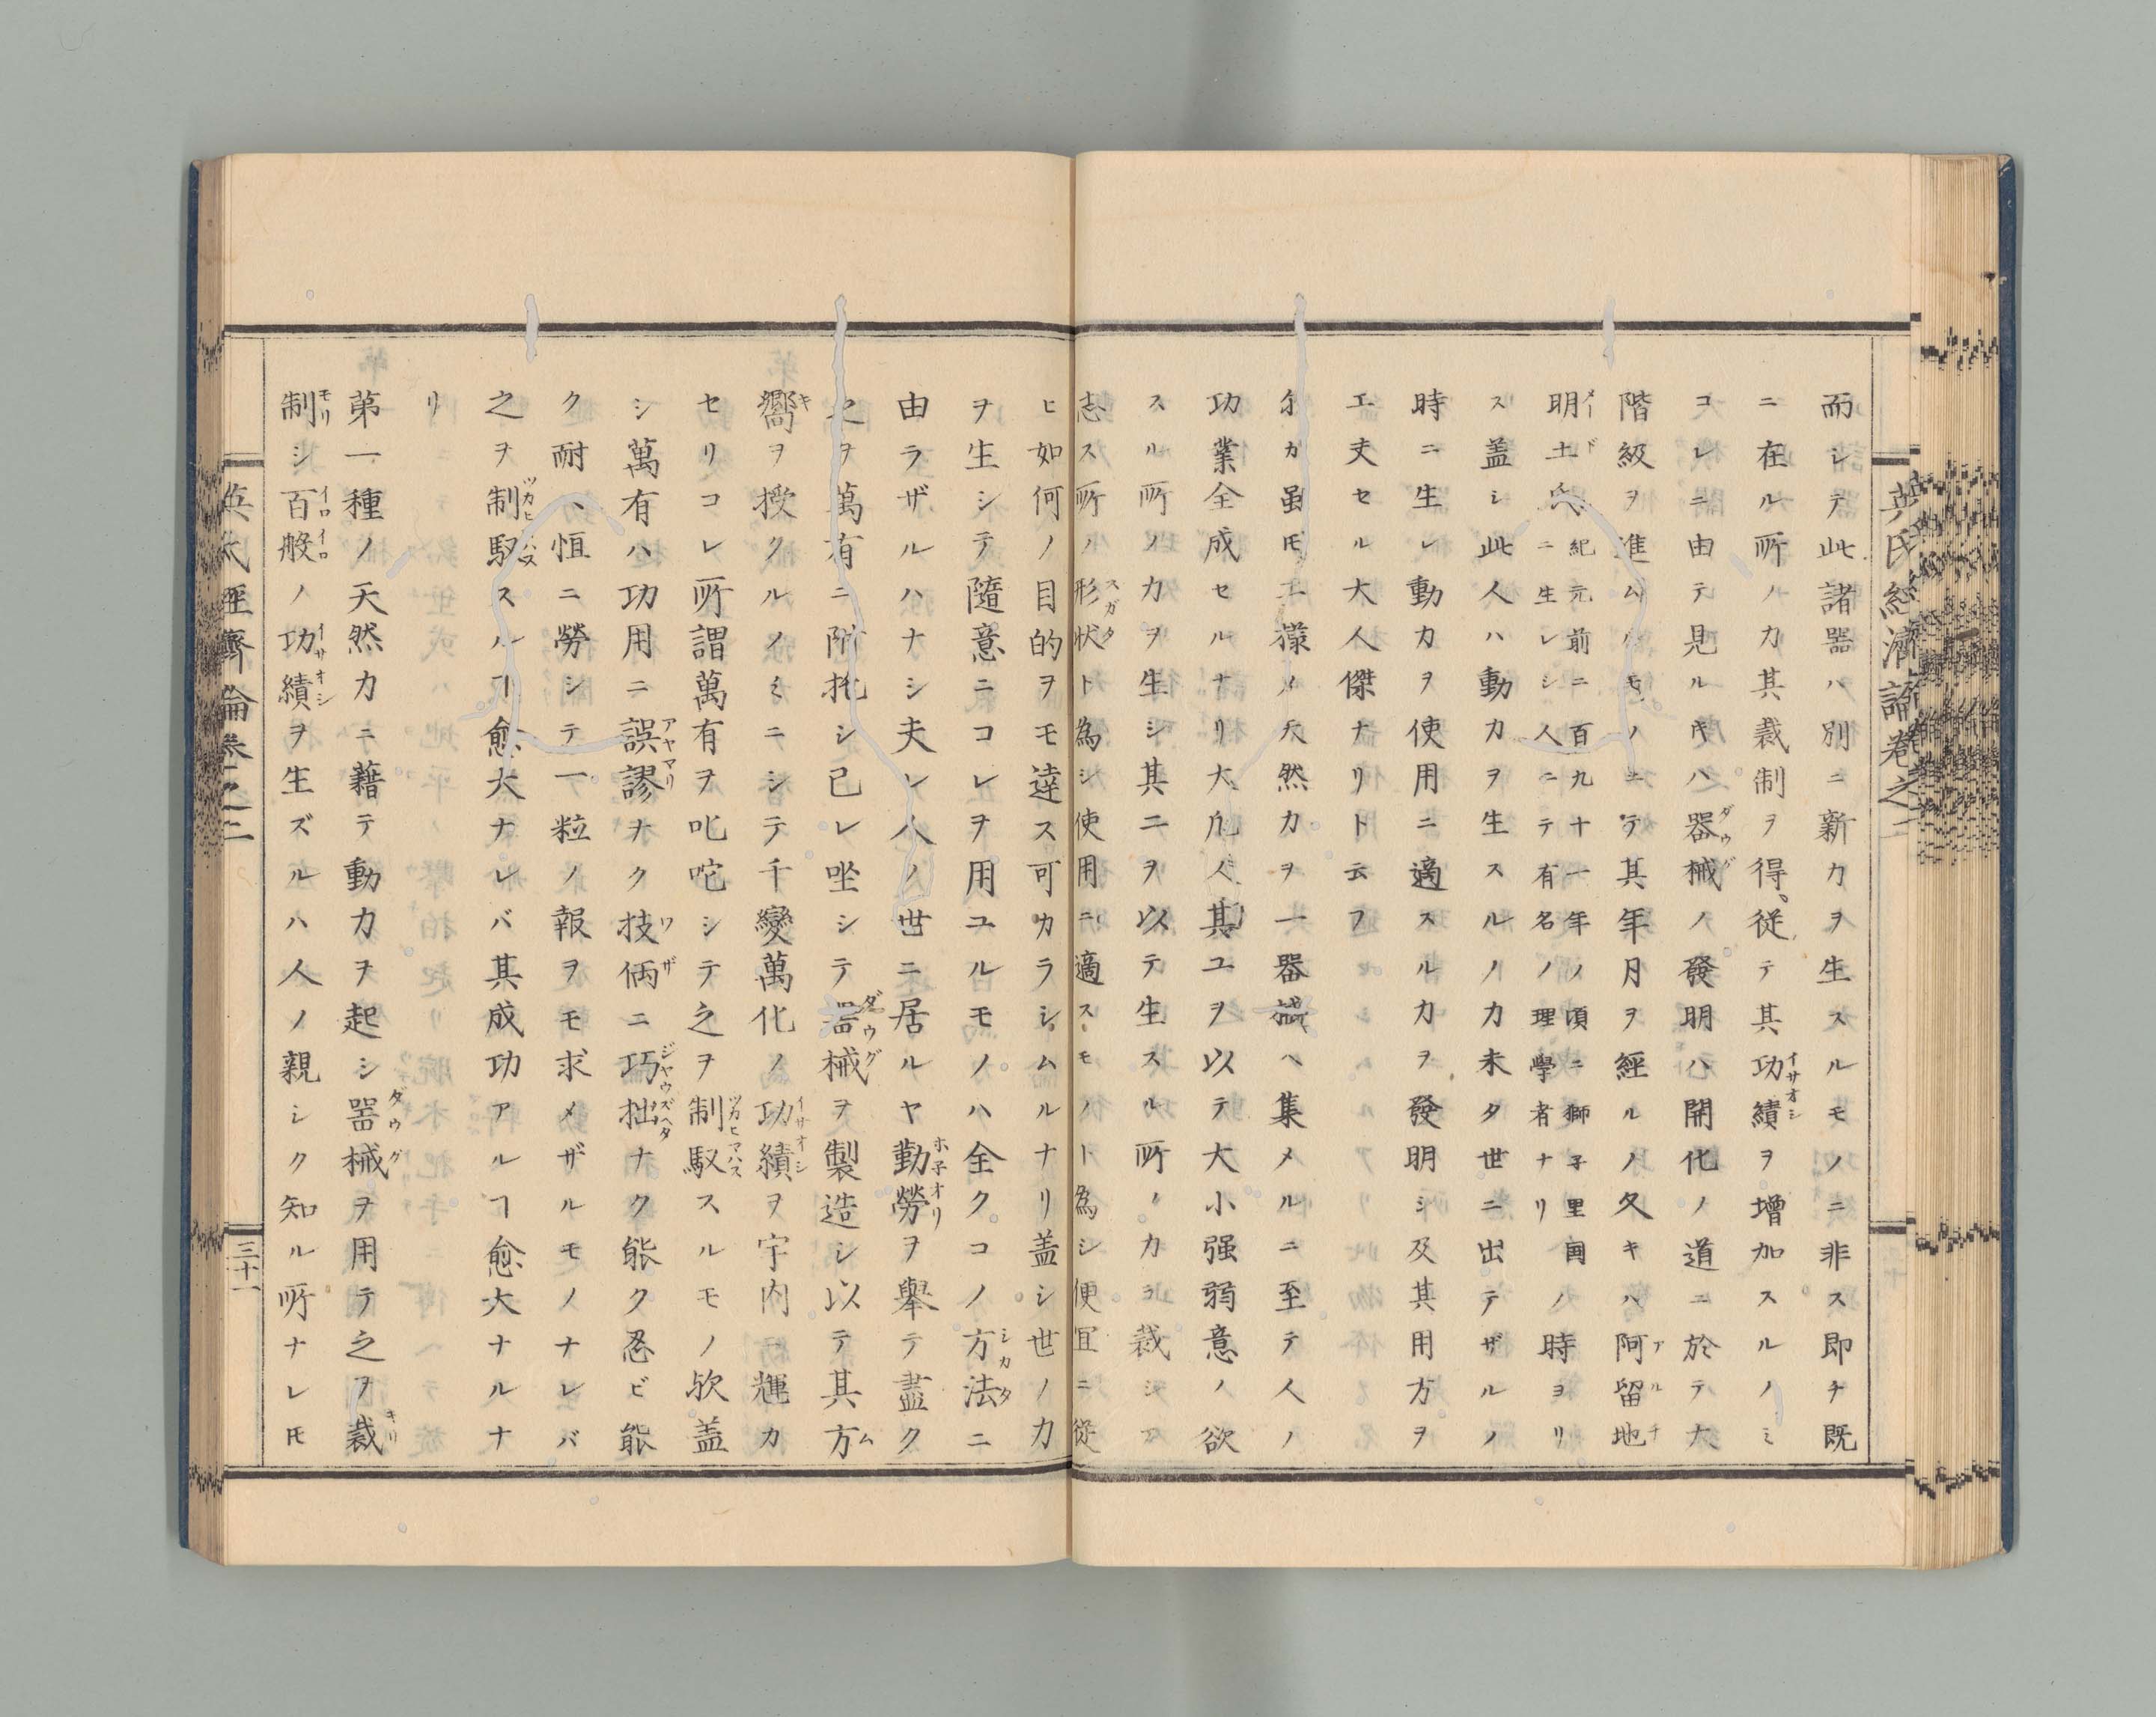 英氏經濟論卷之二
而シテ此諸器ハ別ニ新力ヲ生スルモノニ非ス即チ既
ニ在ル所ノ力其裁制ヲ得、従テ其功績イサオシヲ增加スルノミ
コレニ由テ見ル𪜈ハ器械ダウグノ發明ハ開化ノ道ニ於テ大
階級ヲ進ムルモノニテ其年月ヲ經ルノ久キハ阿留地アルチ
明土メード氏紀元前二百九十一年ノ頃ニ獅子里国ニ生レシ人ニテ有名ノ理學者ナリノ時ヨリ
ス盖シ此人ハ動力ヲ生スルノ力未タ世ニ出テザルノ
時ニ生レ動力ヲ使用ニ適スル力ヲ發明シ及其用方ヲ
工夫セル大人傑ナリト云フ
余カ虽𪜈工様ノ天然力ヲ一器械ヘ集メルニ至テ人ノ
功業全成セルナリ大凢人其工ヲ以テ大小强弱意ノ欲
スル所ノ力ヲ生シ其二ヲ以テ生スル所ノ力ヲ裁シヱ
志ス所ノ形状スガタト為シ使用ニ適スモノト為シ便冝ニ従
ヒ如何ノ目的ヲモ達ス可カラシムルナリ盖シ世ノ力
ヲ生シテ隨意ニコレヲ用ユルモノハ全クコノ方法シカタニ
由ラザルハナシ夫レ人ノ世ニ居ルヤ勤勞ホ子オリヲ舉テ盡ク
之ヲ萬有ニ附托シ已レ坐シテ器械ダウグヲ製造シ以テ其方ム
嚮キヲ授クルノミニシテ千變萬化ノ功績イサオシヲ宇内ニ輝カ
セリコレ所謂萬有ヲ叱咜シテ之ヲ制馭ツカヒマハススルモノ欤盖
シ萬有ハ功用ニ誤謬アヤマリナク技倆ワザニ巧拙ジヤウズヘタナク能ク忍ビ能
ク耐ヘ恒ニ勞シテ一粒ノ報ヲモ求メザルモノナレバ
之ヲ制馭ツカヒマハススルヿ愈大ナレバ其成功アルヿ愈大ナルナ
リ
第一種ノ天然力ニ藉テ動力ヲ起シ器械ダウグヲ用テ之ヲ裁キリ
制モリシ百般イロイロノ功績イサオシヲ生ズルハ人ノ親シク知ル所ナレ𪜈
英氏經濟論卷之二
三十一